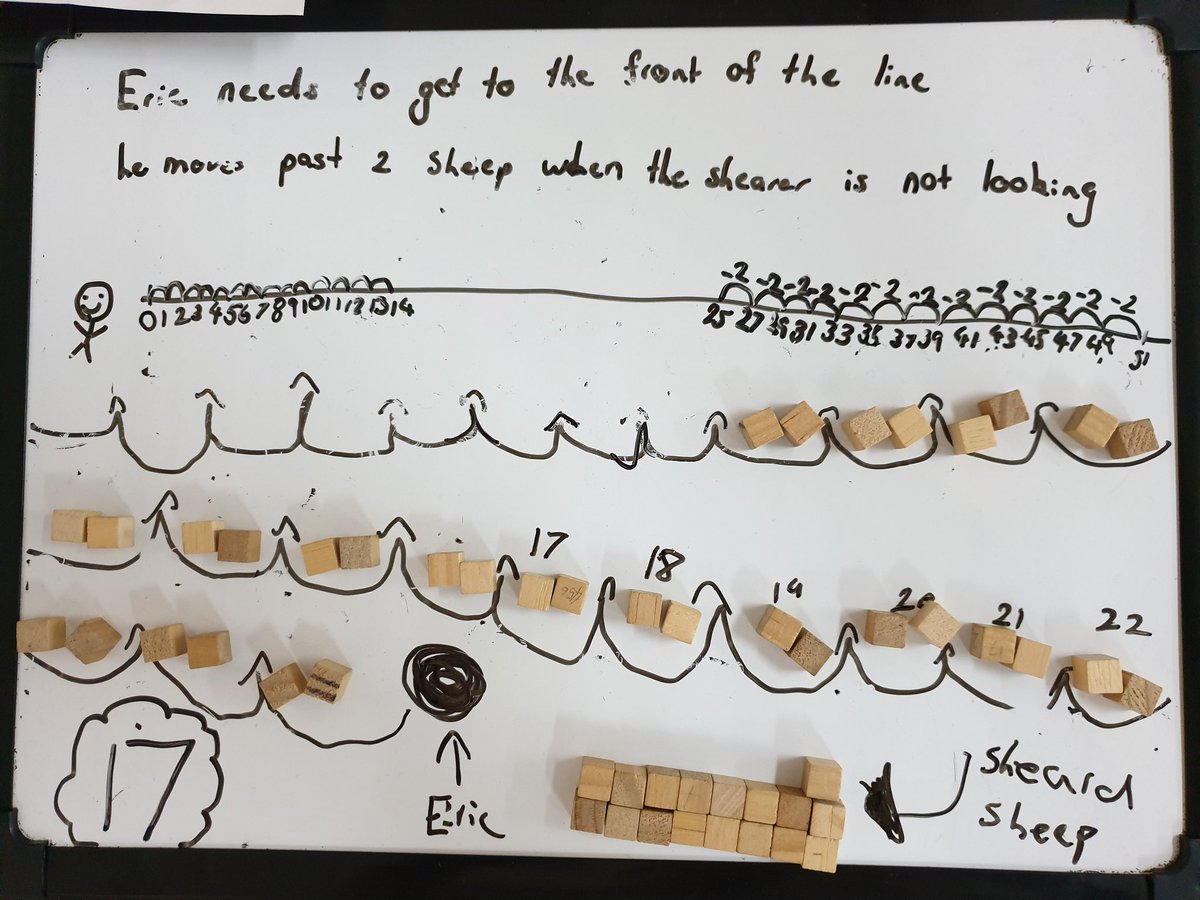 Eric needs to get to the front of the line
he moves past 2 sheep when the shearer is not looking
-2 -2 -2 -2 -2 -2 -2 -2 -2 -2 -2 -2 -2
0 1 2 3 4 5 6 7 8 9 10 11 12 13 14
25 27 29 31 33 35 37 39 41 43 45 47 49 51
17 18 19 20 21 22
17
Eric
sheard
sheep